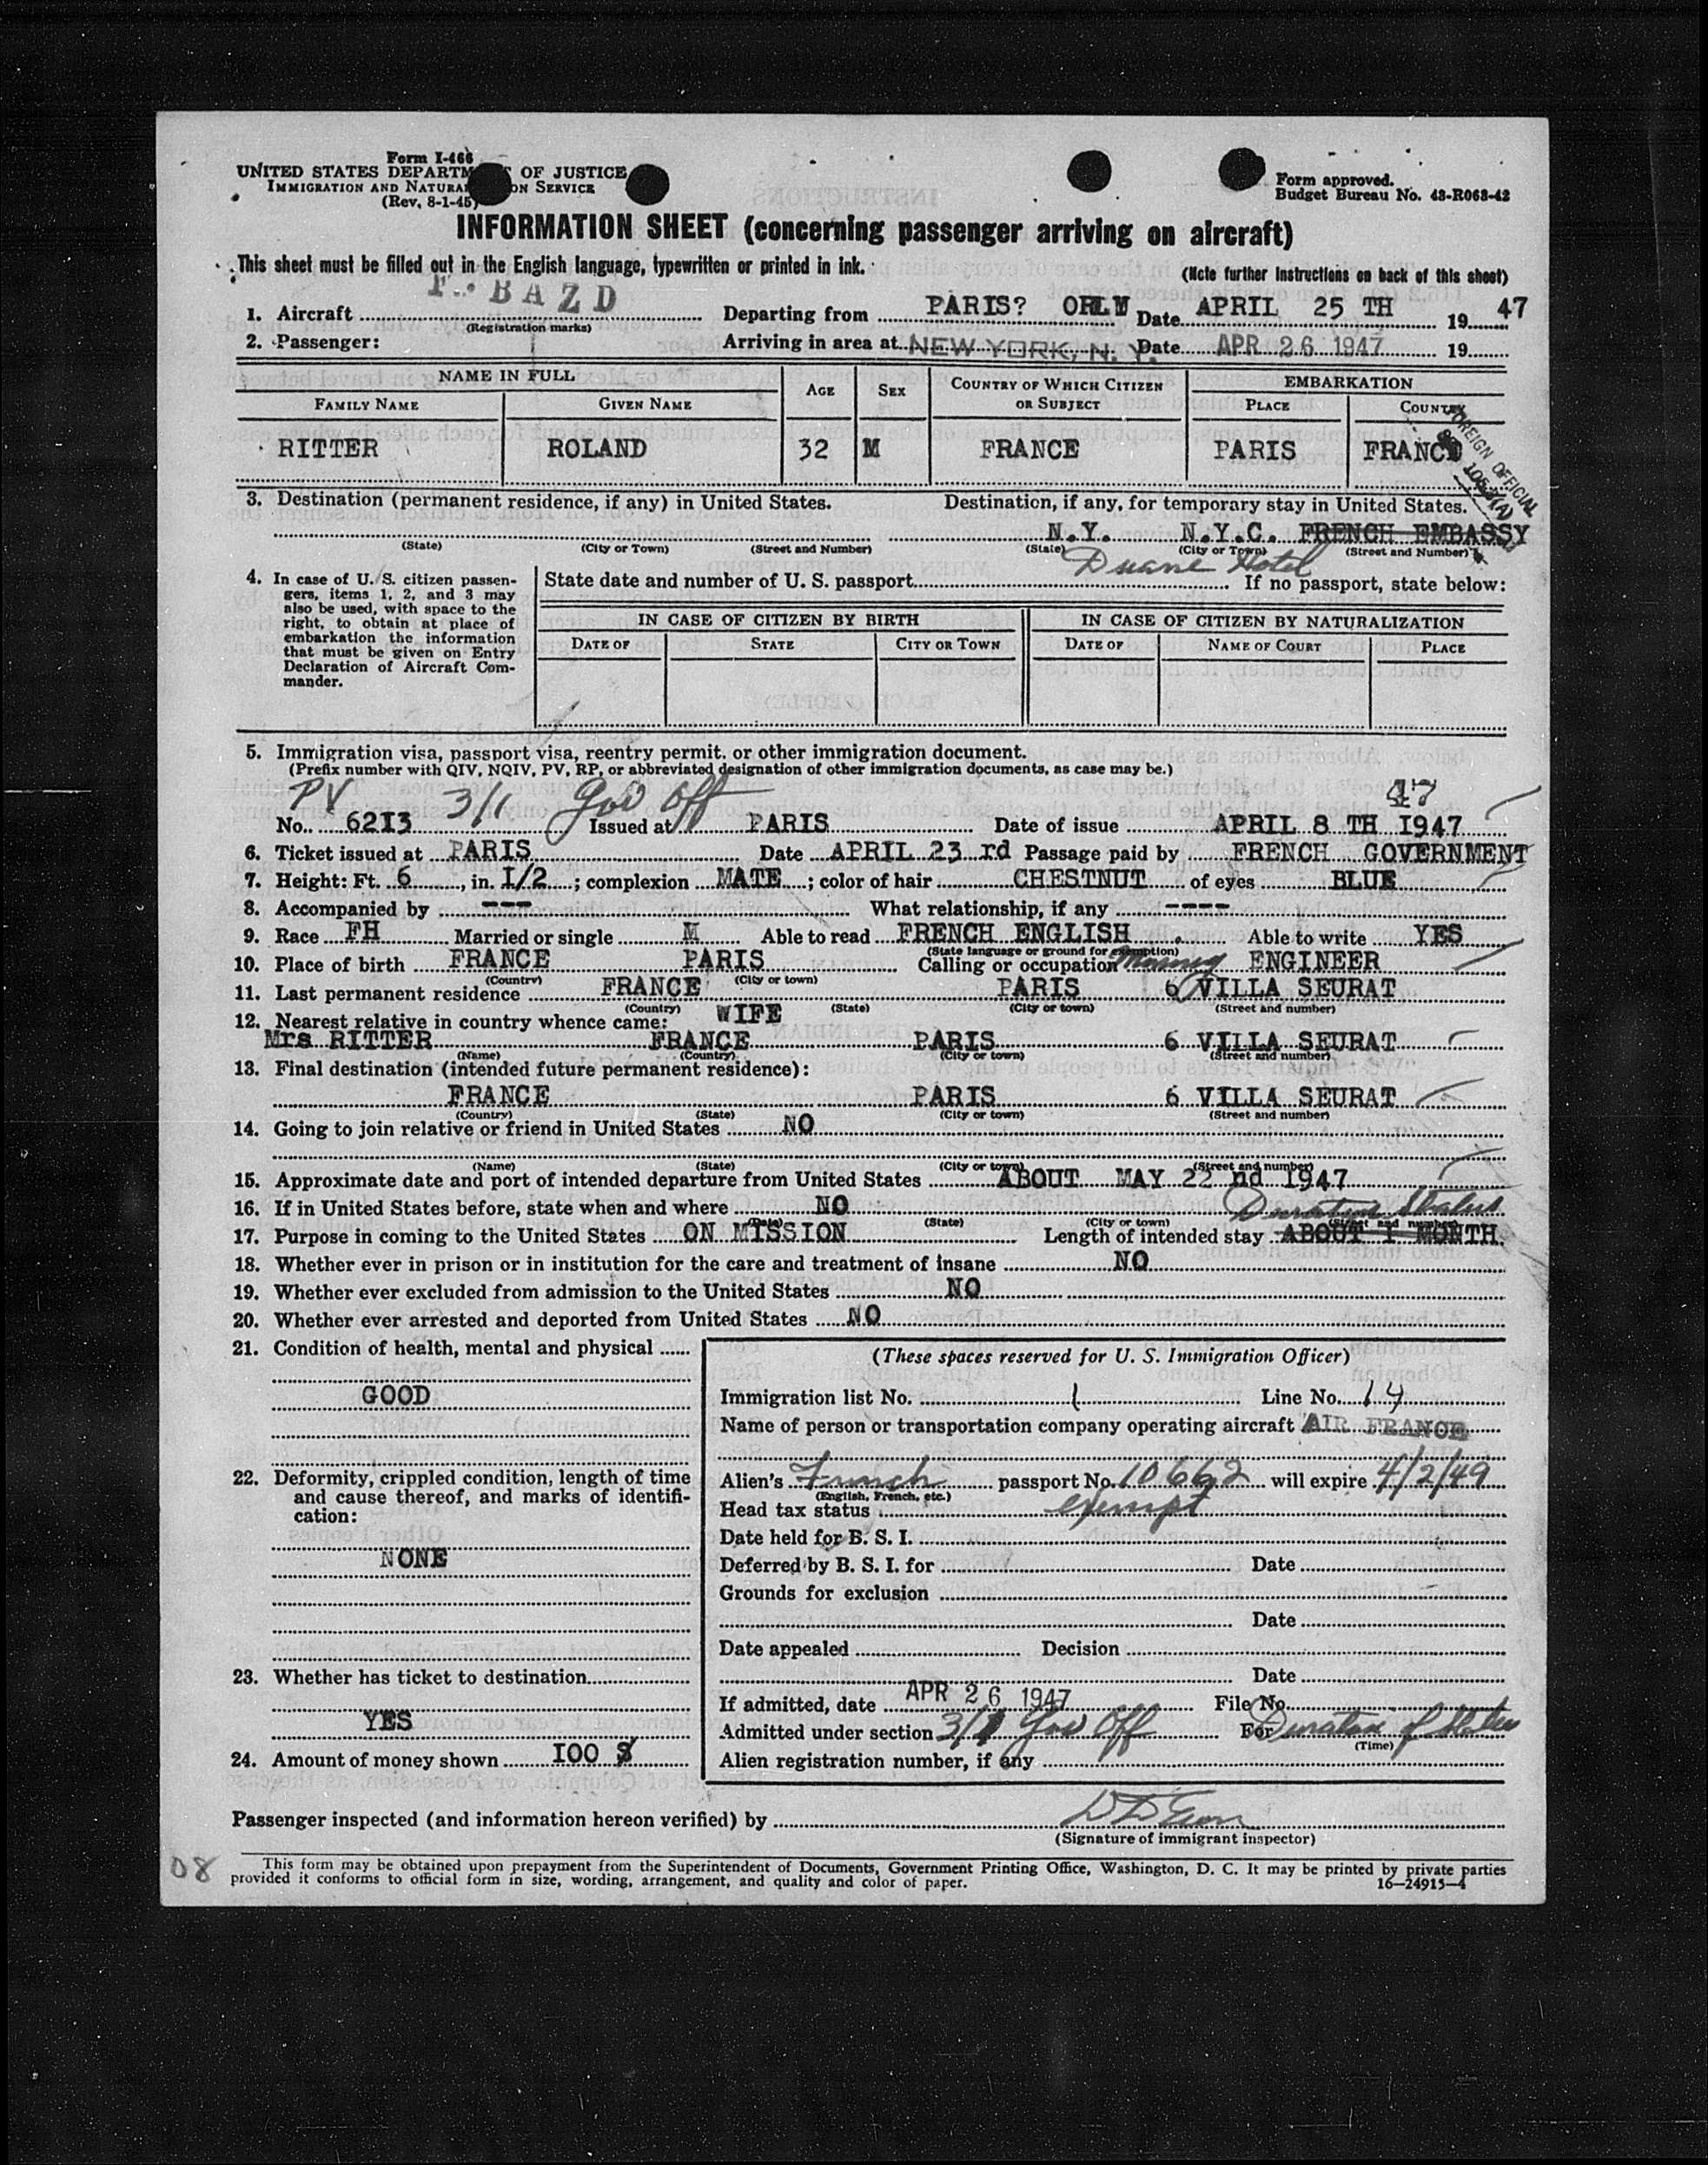 Form I-466
UNITED STATES DEPARTM OF JUSTICE
IMMIGRATION AND NATURA ON SERVICE
(Rev. 8-1-45)
Form approved.
Budget Bureau No. 43-R063-42
INFORMATION SHEET (concerning passenger arriving on aircraft)
This sheet must be filled out in the English language, typewritten or printed in ink.
(Note further instructions on back of this sheet)
1. Aircraft F. BAZD Departing from PARIS? ORLY Date APRIL 25 TH 1947
(Registration marks)
2. Passenger: Arriving in area at NEW YORK, N. Y. Date APR 26 1947 19
NAME IN FULL AGE SEX COUNTRY OF WHICH CITIZEN OR SUBJECT EMBARKATION
FAMILY NAME GIVEN NAME PLACE COUNTRY
RITTER ROLAND 32 M FRANCE PARIS FRANCE
FOREIGN OFFICIAL
3. Destination (permanent residence, if any) in United States. Destination, if any, for temporary stay in United States.
N.Y. N.Y.C. FRENCH EMBASSY
(State) (City or Town) (Street and Number) (State) (City or Town) (Street and Number)
Duane Hotel
4. In case of U. S. citizen passengers, items 1, 2, and 3 may
also be used, with space to the
right, to obtain at place of
embarkation the information
that must be given on Entry
Declaration of Aircraft Commander.
State date and number of U. S. passport If no passport, state below:
IN CASE OF CITIZEN BY BIRTH IN CASE OF CITIZEN BY NATURALIZATION
DATE OF STATE CITY OR TOWN DATE OF NAME OF COURT PLACE
5. Immigration visa, passport visa, reentry permit, or other immigration document.
(Prefix number with QIV, NQIV, PV, RP, or abbreviated designation of other immigration documents, as case may be.)
PV 3/1 Gov Off 47
No. 62I3 Issued at PARIS Date of issue APRIL 8 TH I947
6. Ticket issued at PARIS Date APRIL 23 rd Passage paid by FRENCH GOVERNMENT
7. Height: Ft. 6, in. I/2; complexion MATE; color of hair CHESTNUT of eyes BLUE
8. Accompanied by --- What relationship, if any ----
9. Race FH Married or single M Able to read FRENCH ENGLISH . Able to write YES
(State language or ground for exemption)
10. Place of birth FRANCE PARIS Calling or occupation ENGINEER
(Country) (City or town)
11. Last permanent residence FRANCE PARIS 6 VILLA SEURAT
(Country) (State) (City or town) (Street and number)
12. Nearest relative in country whence came: WIFE
Mrs RITTER FRANCE PARIS 6 VILLA SEURAT
(Name) (Country) (City or town) (Street and number)
13. Final destination (intended future permanent residence):
FRANCE PARIS 6 VILLA SEURAT
(Country) (State) (City or town) (Street and number)
14. Going to join relative or friend in United States NO
(Name) (State) (City or town) (Street and number)
15. Approximate date and port of intended departure from United States ABOUT MAY 22 nd I947
16. If in United States before, state when and where NO
(Date) (State) (City or town) (Street and number)
Duration Status
17. Purpose in coming to the United States ON MISSION Length of intended stay ABOUT I MONTH.
18. Whether ever in prison or in institution for the care and treatment of insane NO
19. Whether ever excluded from admission to the United States NO
20. Whether ever arrested and deported from United States NO
21. Condition of health, mental and physical
GOOD
22. Deformity, crippled condition, length of time
and cause thereof, and marks of identification:
NONE
23. Whether has ticket to destination
YES
24. Amount of money shown I00 $
(These spaces reserved for U. S. Immigration Officer)
Immigration list No. 1 Line No. 14
Name of person or transportation company operating aircraft AIR FRANCE
Alien's French passport No. 10662 will expire 4/2/49
(English, French, etc.)
Head tax status exempt
Date held for B. S. I.
Deferred by B. S. I. for Date
Grounds for exclusion
Date
Date appealed Decision
Date
If admitted, date APR 26 1947 File No.
Admitted under section 3/1 Gov Off For Duration of Status
(Time)
Alien registration number, if any
Passenger inspected (and information hereon verified) by
(Signature of immigrant inspector)
This form may be obtained upon prepayment from the Superintendent of Documents, Government Printing Office, Washington, D. C. It may be printed by private parties
provided it conforms to official form in size, wording, arrangement, and quality and color of paper.
16—24915-4
08